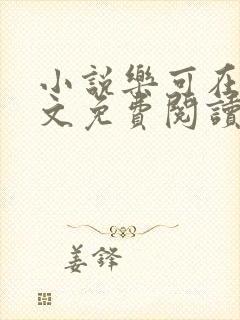 小說樂可在
文免費閱讀
姜鋒